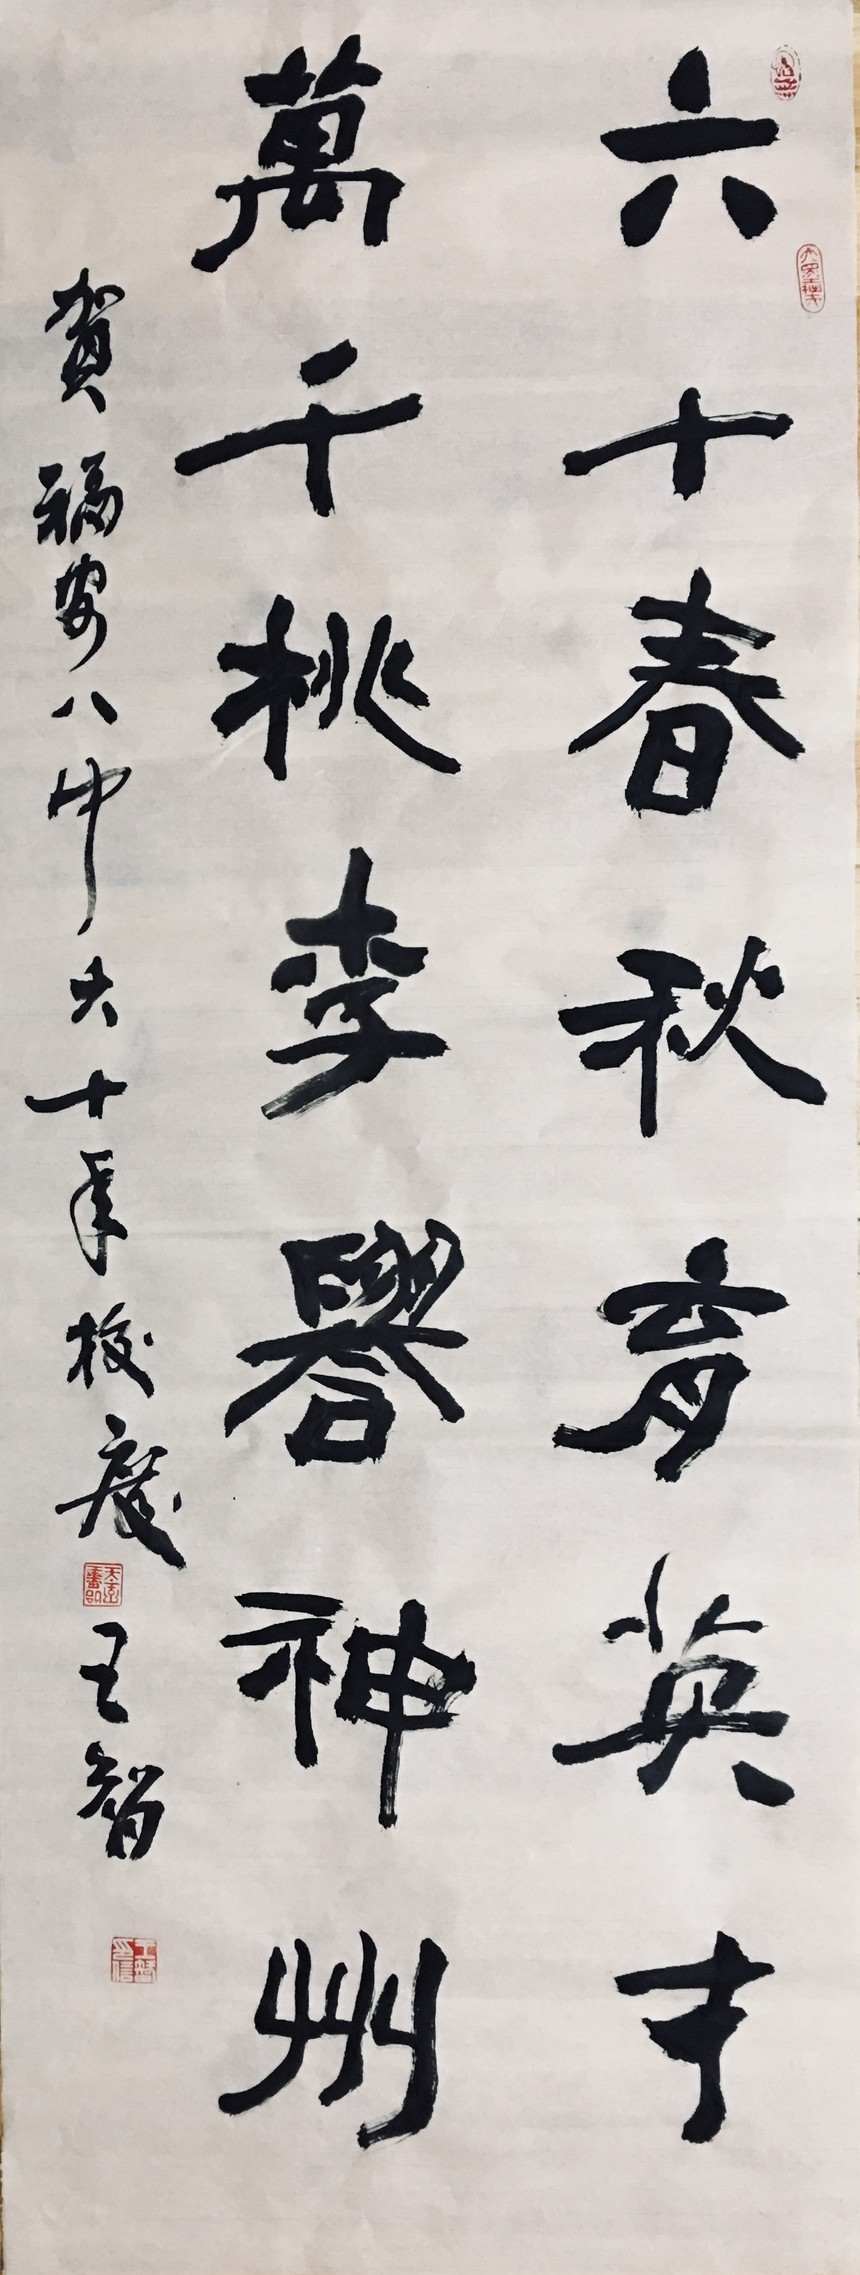 六十春秋育英才
萬千桃李譽神州
賀福安八中六十年校慶
王智